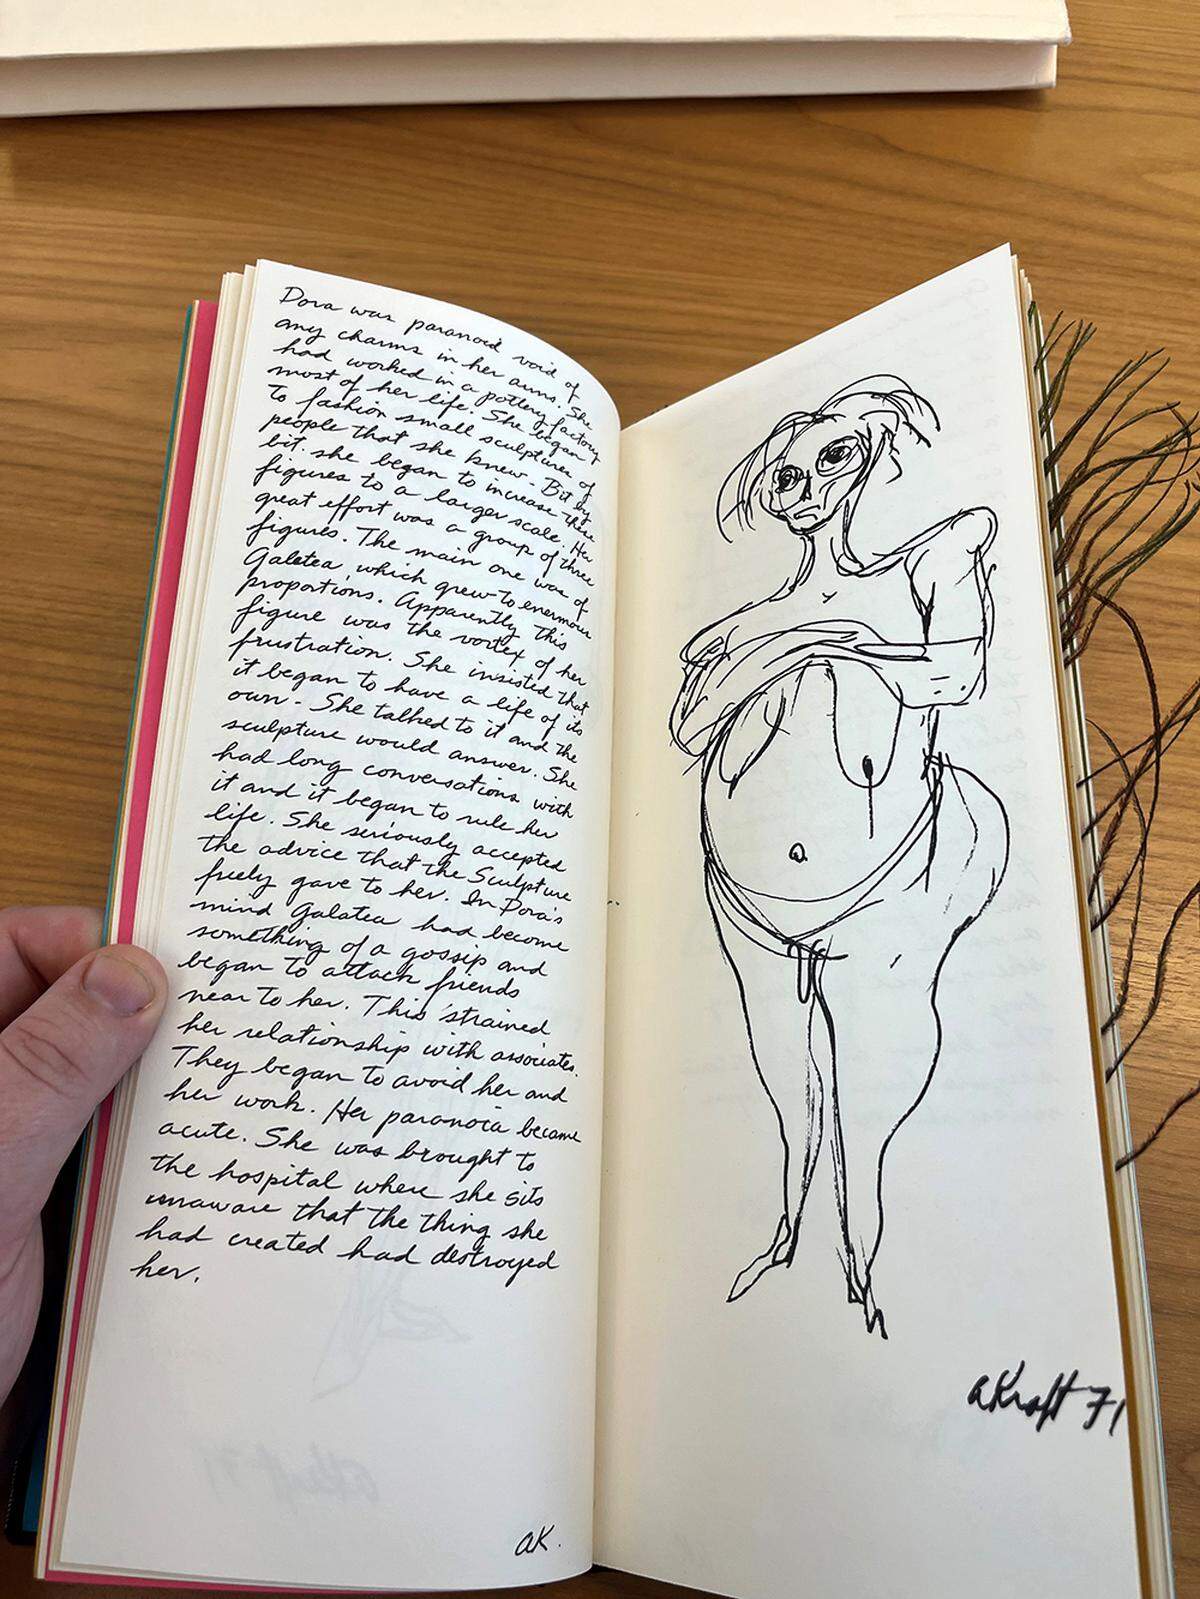 Dora was paranoid void of
any charms in her arms. She
had worked in a pottery factory
most of her life. She began
to fashion small sculptures of
people that she knew. Bit by
bit she began to increase these
figures to a larger scale. Her
great effort was a group of three
figures. The main one was of
Galatea which grew to enormous
proportions. Apparently this
figure was the vortex of her
frustration. She insisted that
it began to have a life of its
own. She talked to it and the
sculpture would answer. She
had long conversations with
it and it began to rule her
life. She seriously accepted
the advice that the Sculpture
freely gave to her. In Dora's
mind Galatea had become
something of a gossip and
began to attack friends
near to her. This strained
her relationship with associates.
They began to avoid her and
her work. Her paranoia became
acute. She was brought to
the hospital where she sits
unaware that the thing she
had created had destroyed
her.
aK.
aKraft 71